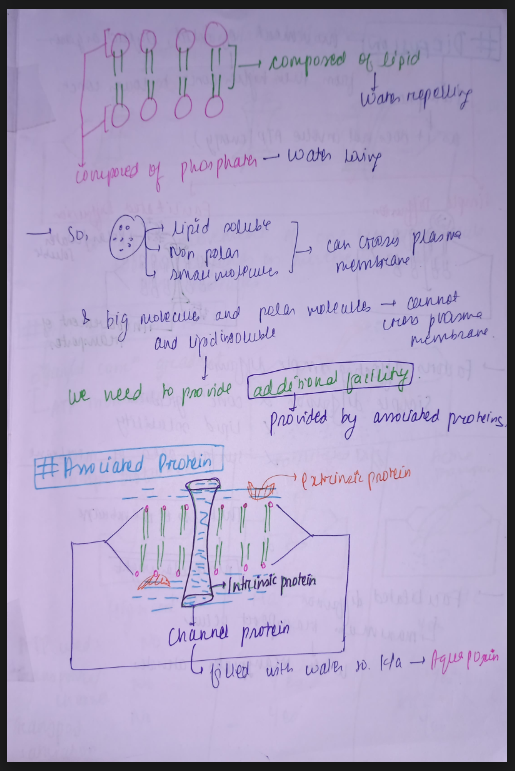 → composed of lipid
Water repelling
composed of phosphates → water loving
→ So,
→ lipid soluble
→ Non polar
→ small molecules
→ can cross plasma
membrane.
& big molecule and polar molecules → cannot
and lipid insoluble
cross plasma
membrane.
we need to provide additional facility.
provided by associated proteins.
# Associated Protein
→ extrinsic protein
→ Intrinsic protein
Channel protein
filled with water so. k/a → Aquaporin